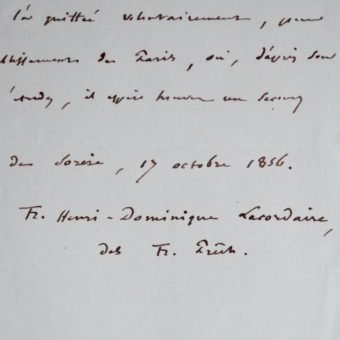 l'a quitté volontairement, pour
de Paris, où, d'après son
il espère trouver un secours
de Sorèze, 17 octobre 1856.
Fr. Henri-Dominique Lacordaire,
des Fr. Prêch.